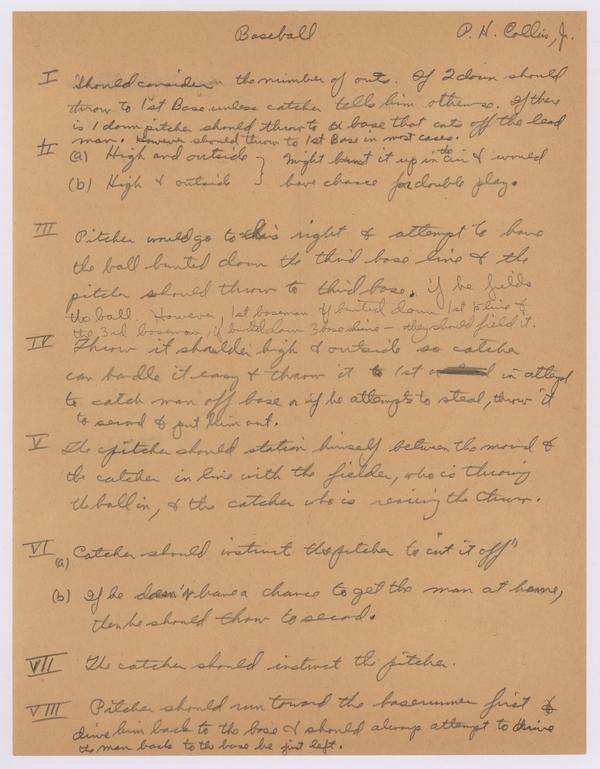 Baseball P. H. Collins, Jr.
I Should consider the number of outs. If 2 down should
throw to 1st Base unless catcher tells him otherwise. If there
is 1 down pitcher should throw to a base that cuts off the lead
man. However should throw to 1st Base in most cases.
II (a) High and outside } might bunt it up in the air & would
(b) High & outside } have chance for double play.
III Pitcher would go to his right & attempt to have
the ball bunted down the third base line & the
pitcher should throw to third base, if he fields
the ball. However, 1st baseman if bunted down 1st b line &
the 3rd baseman, if bunted down 3 base line - they should field it.
IV Throw it shoulder high & outside so catcher
can handle it easy & throw it to 1st in attempt
to catch man off base or if he attempts to steal, throw it
to second & put him out.
V The pitcher should station himself between the mound &
the catcher in line with the fielder, who is throwing
the ball in, & the catcher who is receiving the throw.
VI (a) Catcher should instruct the pitcher to "cut it off"
(b) If he doesn't have a chance to get the man at home,
then he should throw to second.
VII The catcher should instruct the pitcher.
VIII Pitcher should run toward the baserunner first &
drive him back to the base & should always attempt to drive
the man back to the base he just left.